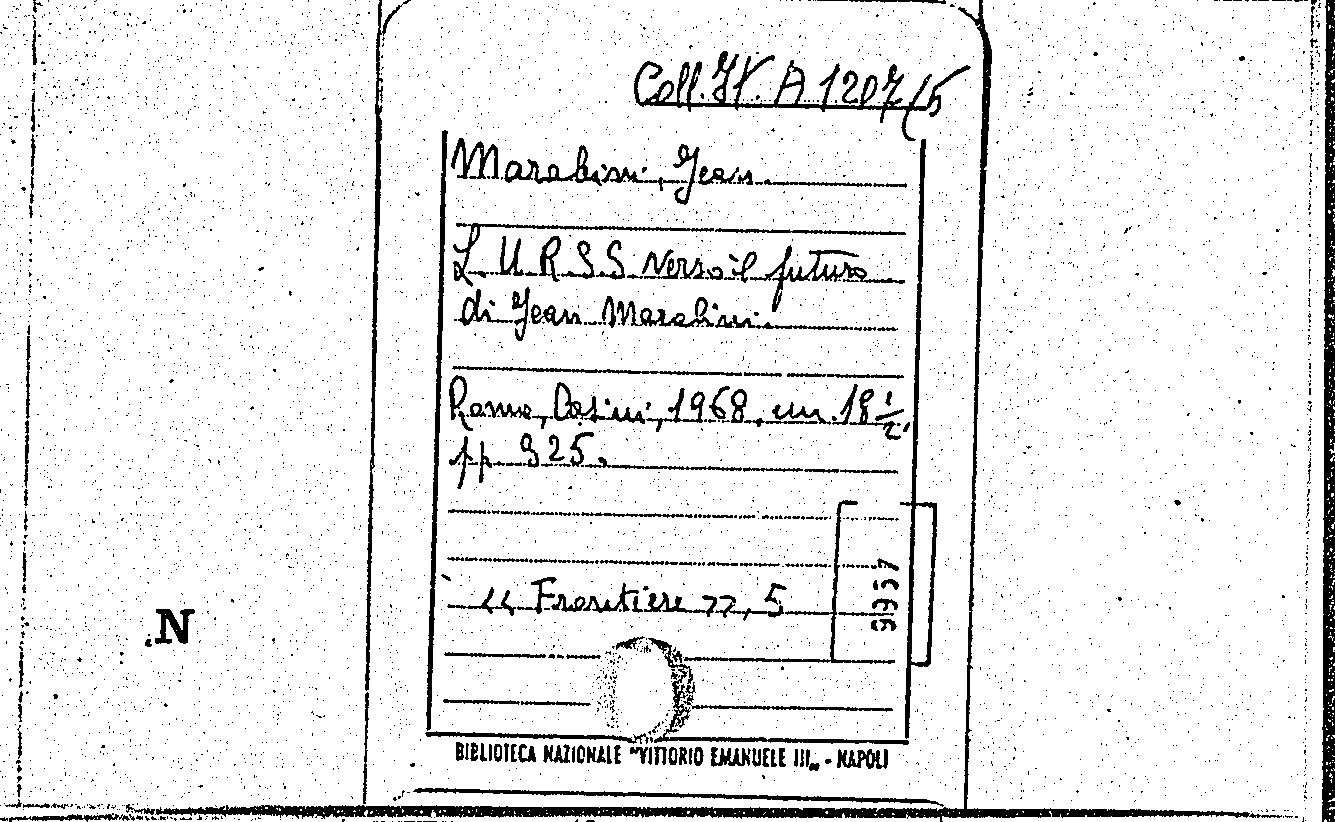 Coll. It. A 1207/5
Marabini, Jean.
L'U.R.S.S verso il futuro
di Jean Marabini.
Roma, Casini, 1968, in. 18 1/2,
pp. 325.
"Frontiere", 5
N
BIBLIOTECA NAZIONALE "VITTORIO EMANUELE III„ - NAPOLI